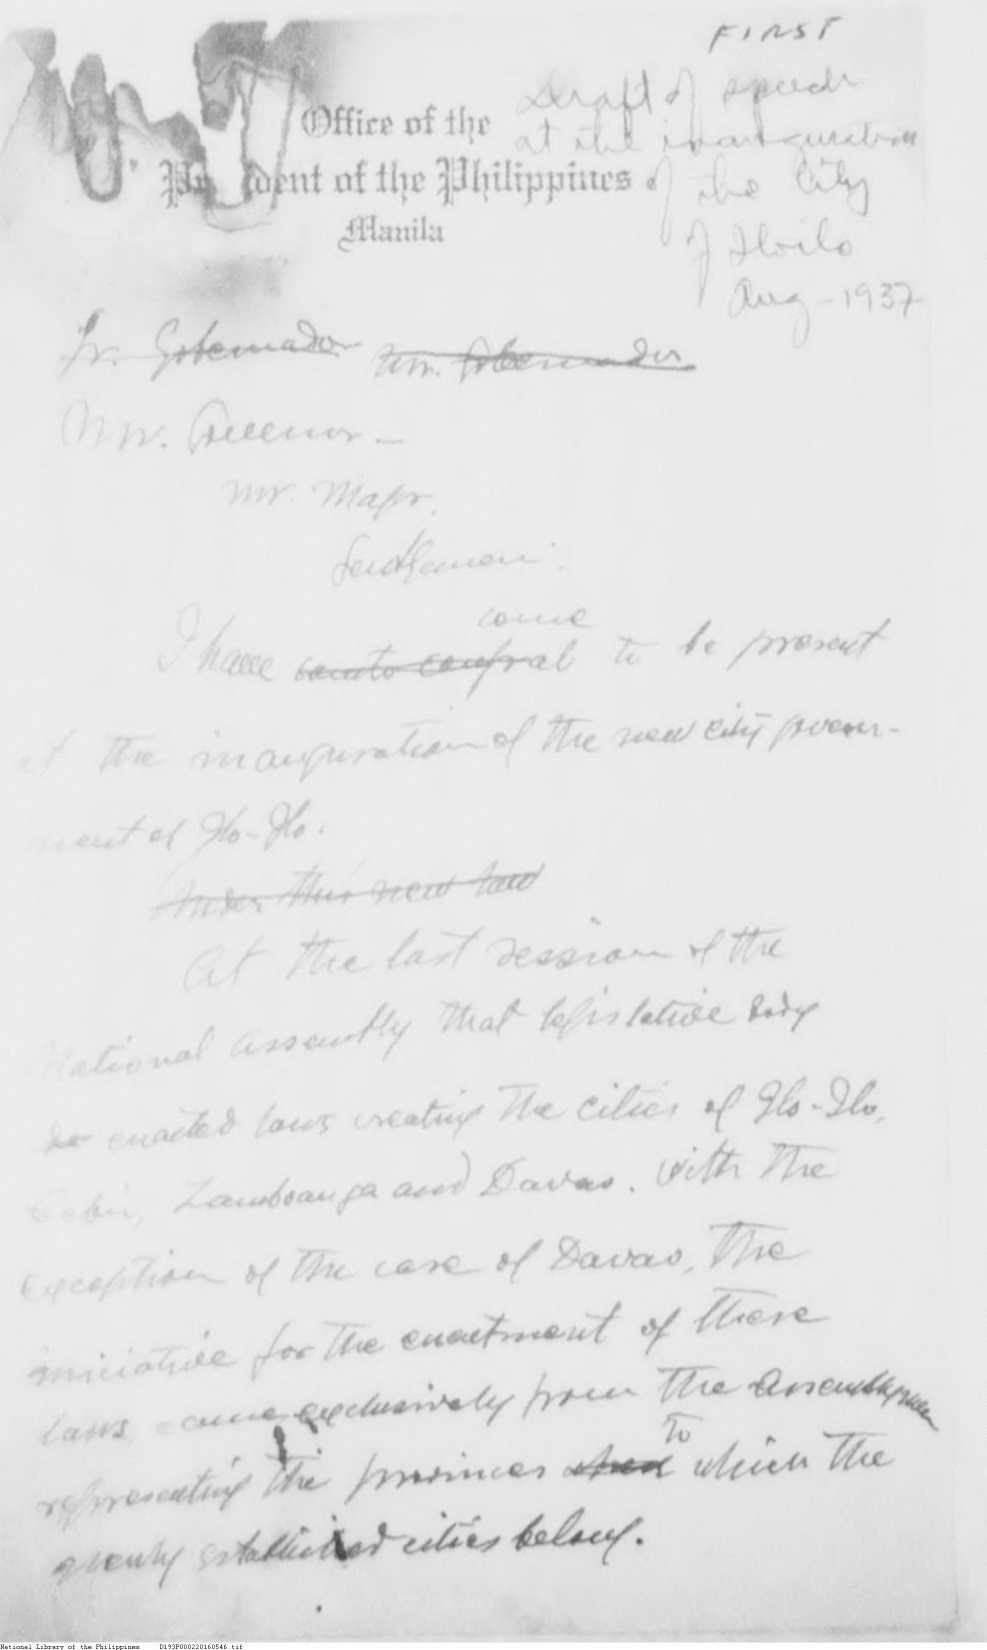 FIRST
Draft of speech
at the inauguration
of the City
of Iloilo
Aug - 1937
Office of the
President of the Philippines
Manila
Sr. Gobernador Mr. Gobernador
Mr. Governor -
Mr. Mayor.
Gentlemen:
come
I have to be present
at the inauguration of the new city govern-
ment of Ilo-Ilo.
Under this new law
At the last session of the
National Assembly that legislative body
enacted laws creating the cities of Ilo-Ilo,
Cebú, Zamboanga and Davao. With the
exception of the case of Davao, the
iniciative for the enactment of these
laws came exclusively from the Assemblymen
to
representing the provinces which the
newly established cities belong.
National Library of the Philippines D193P000220160546.tif